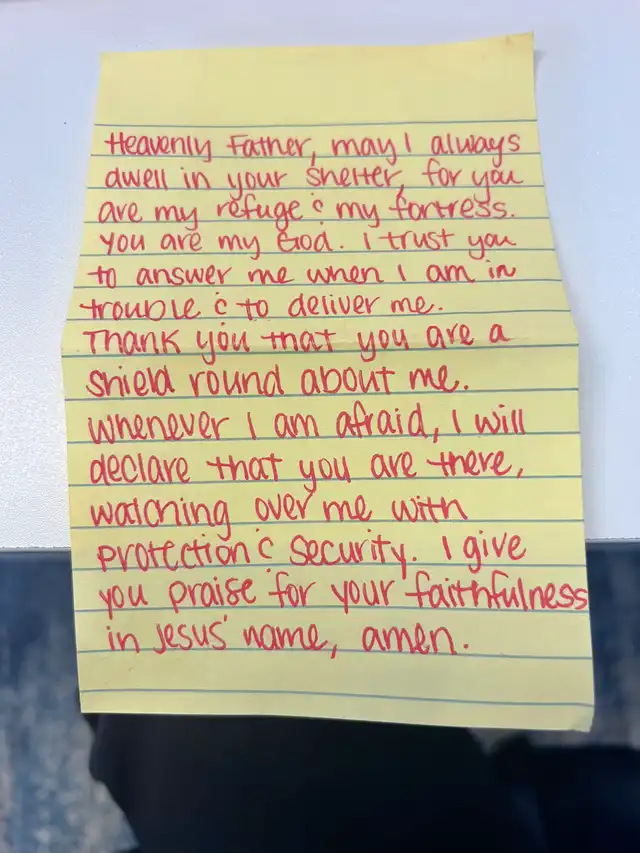 Heavenly Father, may I always
dwell in your shelter, for you
are my refuge & my fortress.
You are my God. I trust you
to answer me when I am in
trouble & to deliver me.
Thank you that you are a
shield round about me.
Whenever I am afraid, I will
declare that you are there,
watching over me with
protection & security. I give
you praise for your faithfulness
in Jesus' name, amen.